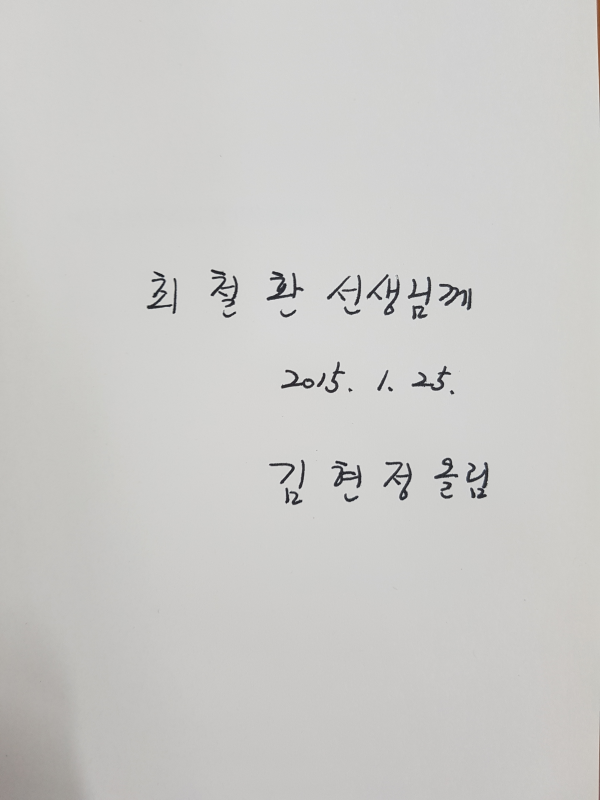 최 철 환 선생님께
2015. 1. 25.
김 현 정 올림